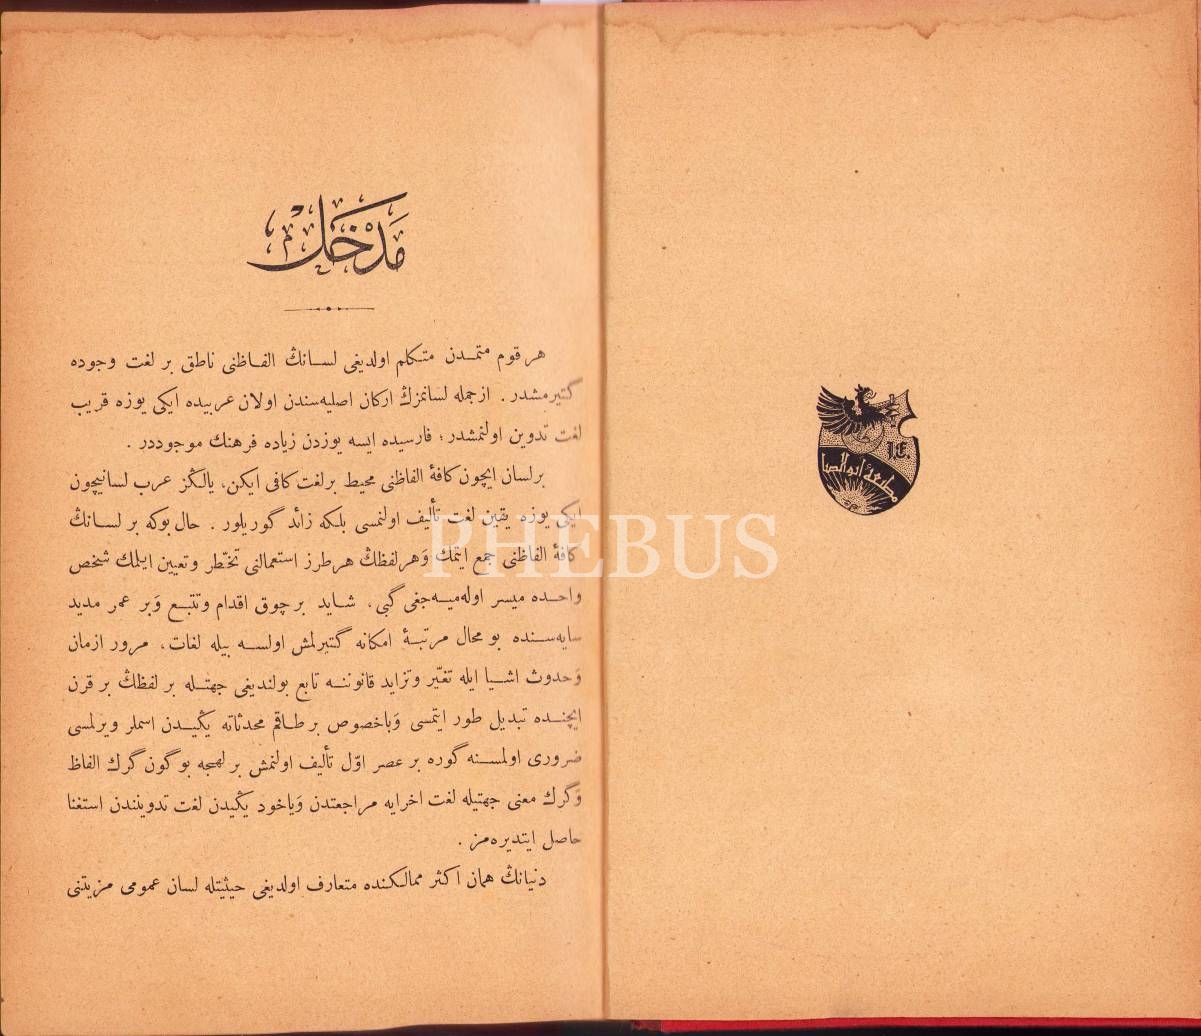 مطبعۀ ابوالضیا
مَدْخَلْ
هر قوم متمدن متكلم اولدیغی لسانڭ الفاظنی ناطق بر لغت وجوده
گتیرمشدر . ازجمله لسانمزڭ اركان اصلیه‌سندن اولان عربیده ایكی یوزه قریب
لغت تدوین اولنمشدر ؛ فارسیده ایسه یوزدن زیاده فرهنك موجوددر .
بر لسان ایچون كافۀ الفاظنی محیط بر لغت كافی ایكن، یالڭز عرب لسانیچون
ایكی یوزه یقین لغت تألیف اولنمسی بلكه زائد گوریلور . حال بوكه بر لسانڭ
كافۀ الفاظنی جمع ایتمك وَهر لفظڭ هر طرز استعمالنی تخطّر وتعیین ایلمك شخص
واحده میسر اوله‌میه‌جغی گبی، شاید بر چوق اقدام وتتبع وَبر عمر مدید
سایه‌سنده بو محال مرتبۀ امكانه گتیرلمش اولسه بیله لغات، مرور ازمان
وَحدوث اشیا ایله تغیّر وتزاید قانوننه تابع بولندیغی جهتله بر لفظڭ بر قرن
ایچنده تبدیل طور ایتمسی وَباخصوص بر طاقم محدثاته یڭیدن اسملر ویرلمسی
ضروری اولمسنه گوره بر عصر اوّل تألیف اولنمش بر لهجه بو گون گرك الفاظ
وَگرك معنی جهتیله لغت اخرایه مراجعتدن وَیاخود یڭیدن لغت تدوینندن استغنا
حاصل ایتدیره‌مز .
دنیانڭ همان اكثر ممالكنده متعارف اولدیغی حیثیتله لسان عمومی مزیتنی
PHEBUS